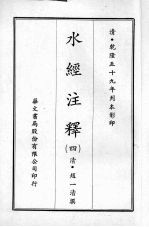 清·乾隆五十九年刊本影印
水經注釋
(四)清·趙一清撰
華文書局股份有限公司印行